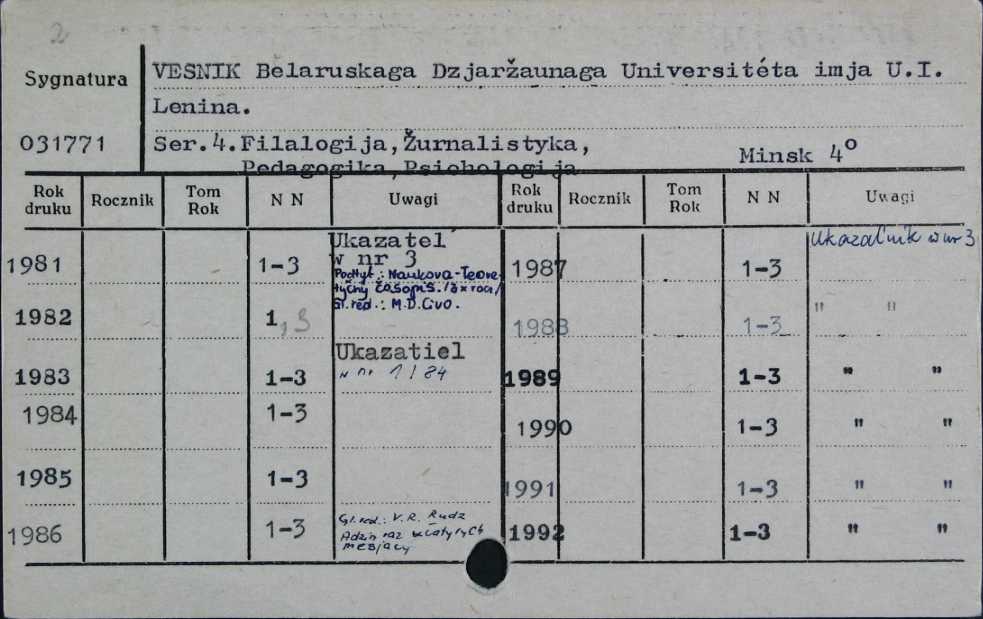 2
Sygnatura
VESNIK Belaruskaga Dzjaržaunaga Universitéta imja U.I.
Lenina.
031771
Ser.4.Filalogija,Žurnalistyka,
Pedagogika,Psichologija
Minsk 4º
Rok druku Rocznik Tom Rok N N Uwagi Rok druku Rocznik Tom Rok N N Uwagi
1981 1-3 Ukazatel´
w nr 3
Podtyt.: Naukova-Teore-
tyčny časopis.
Gł. red.: M.D. Civo.
1982 1,3
1983 1-3 Ukazatiel
w nr 1/84
1984 1-3
1985 1-3
1986 1-3 Gł. red.: V.R. Rudz
Adzin raz
mesjacy
1987 1-3 Ukazal'nik w nr 3
1988 1-3 " "
1989 1-3 " "
1990 1-3 " "
1991 1-3 " "
1992 1-3 " "